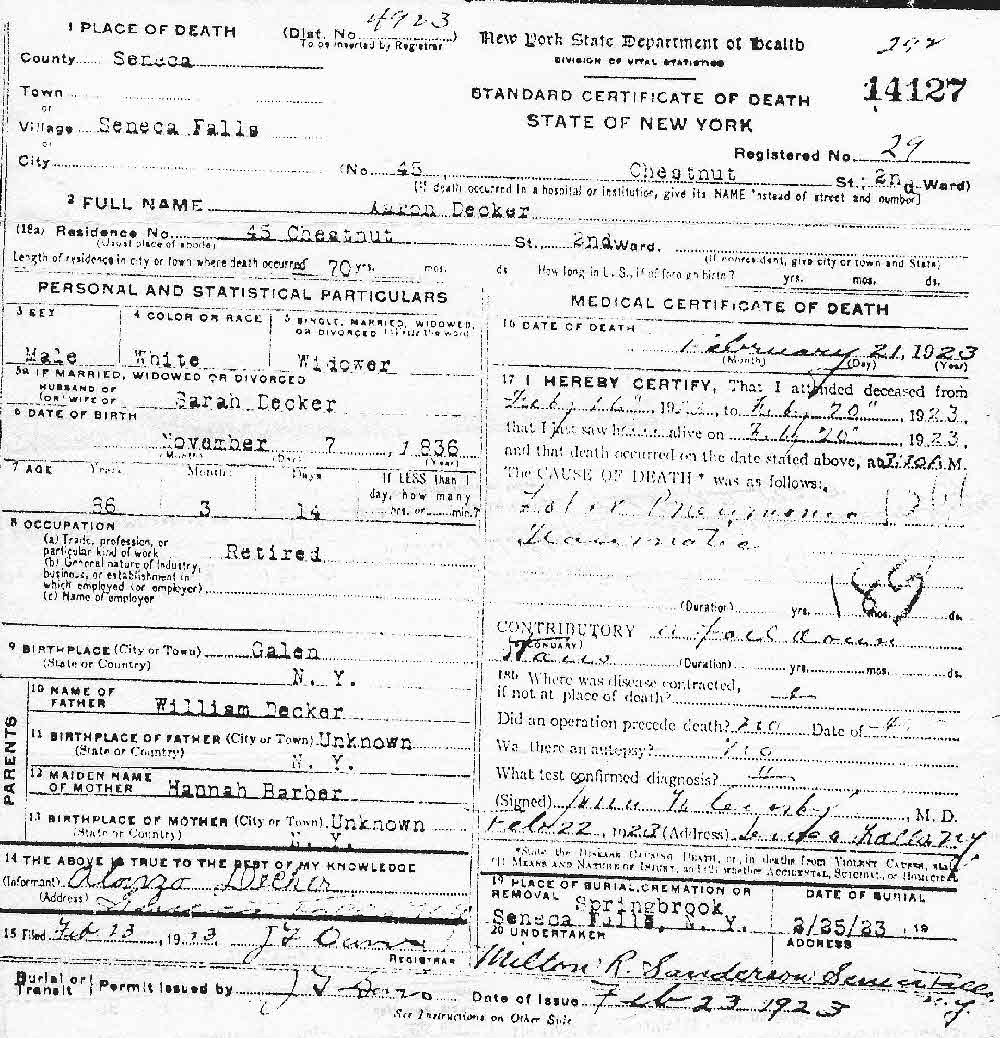 4923
1 PLACE OF DEATH (Dist. No. )
To be inserted by Registrar
New York State Department of Health
292
County Seneca
DIVISION OF VITAL STATISTICS
Town
STANDARD CERTIFICATE OF DEATH
14127
or
Village Seneca Falls
STATE OF NEW YORK
or
Registered No. 29
City (No. 45 Chestnut St.; 2nd Ward)
(If death occurred in a hospital or institution, give its NAME instead of street and number)
2 FULL NAME Aaron Decker
(18a) Residence No. 45 Chestnut St., 2nd Ward.
(Usual place of abode) (If nonresident, give city or town and State)
Length of residence in city or town where death occurred 70 yrs. mos. ds. How long in U. S., if of foreign birth? yrs. mos. ds.
PERSONAL AND STATISTICAL PARTICULARS
3 SEX 4 COLOR OR RACE 5 SINGLE, MARRIED, WIDOWED,
OR DIVORCED (write the word)
Male White Widower
5a IF MARRIED, WIDOWED OR DIVORCED
HUSBAND OF
(OR) WIFE OF Sarah Decker
6 DATE OF BIRTH
November 7, 1836
(Month) (Day) (Year)
7 AGE Years Months Days If LESS than 1
day, how many
86 3 14 hrs. or min.?
8 OCCUPATION
(a) Trade, profession, or
particular kind of work Retired
(b) General nature of Industry,
business, or establishment in
which employed (or employer)
(c) Name of employer
9 BIRTHPLACE (City or Town) Galen
(State or Country) N. Y.
PARENTS
10 NAME OF
FATHER William Decker
11 BIRTHPLACE OF FATHER (City or Town) Unknown
(State or Country) N. Y.
12 MAIDEN NAME
OF MOTHER Hannah Barber
13 BIRTHPLACE OF MOTHER (City or Town) Unknown
(State or Country) N. Y.
14 THE ABOVE IS TRUE TO THE BEST OF MY KNOWLEDGE
(Informant) Alonzo Decker
(Address)
15 Filed Feb 23, 1923
REGISTRAR
MEDICAL CERTIFICATE OF DEATH
16 DATE OF DEATH
February 21, 1923
(Month) (Day) (Year)
17 I HEREBY CERTIFY, That I attended deceased from
Feby 16", 1923, to Feby 20", 1923.
that I last saw alive on 20", 1923.
and that death occurred on the date stated above, at M.
The CAUSE OF DEATH* was as follows:
Lobar Pneumonia
Traumatic
(Duration) yrs. mos. ds.
189
CONTRIBUTORY a fall down
(SECONDARY)
Stairs (Duration) yrs. mos. ds.
18b Where was disease contracted,
if not at place of death?
Did an operation precede death? no Date of
Was there an autopsy? no
What test confirmed diagnosis?
(Signed) M. D.
Feb 22, 1923 (Address) Seneca Falls N.Y.
*State the DISEASE CAUSING DEATH, or, in deaths from VIOLENT CAUSES, state
(1) MEANS AND NATURE OF INJURY, and (2) whether ACCIDENTAL, SUICIDAL, or HOMICIDAL
19 PLACE OF BURIAL, CREMATION OR
REMOVAL Springbrook
Seneca Falls, N. Y.
DATE OF BURIAL
2/25/23, 19
20 UNDERTAKER ADDRESS
Milton R. Sanderson Seneca Falls
N.Y.
Burial or
Transit Permit Issued by Date of Issue Feb 23 1923
See Instructions on Other Side